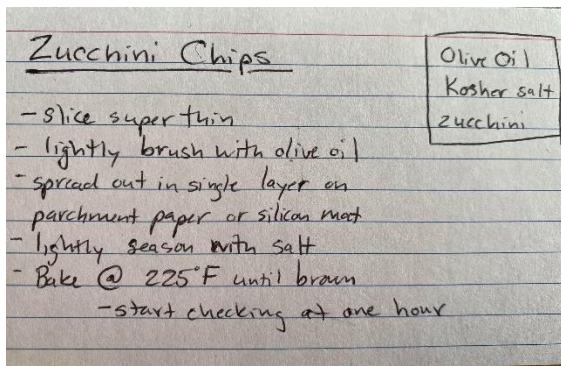 Zucchini Chips
Olive Oil
Kosher salt
zucchini
- slice super thin
- lightly brush with olive oil
- spread out in single layer on
parchment paper or silicon mat
- lightly season with salt
- Bake @ 225°F until brown
- start checking at one hour